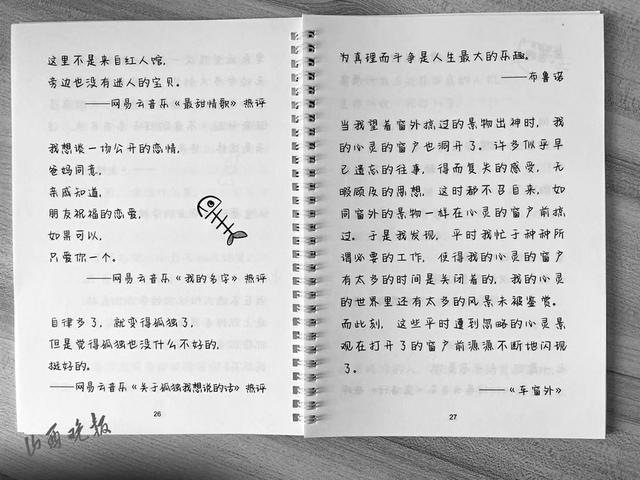 这里不是来自红人馆,
旁边也没有迷人的宝贝。
——网易云音乐《最甜情歌》热评
我想谈一场公开的恋情,
爸妈同意,
亲戚知道,
朋友祝福的恋爱,
如果可以,
只爱你一个。
——网易云音乐《我的名字》热评
自律多了，就变得孤独了,
但是觉得孤独也没什么不好的,
挺好的。
——网易云音乐《关于孤独我想说的话》热评
26
为真理而斗争是人生最大的乐趣。
——布鲁诺
当我望着窗外掠过的景物出神时，我
的心灵的窗户也洞开了。许多似乎早
已遗忘的往事，得而复失的感受，无
暇顾及的思想，这时都不召自来，如
同窗外的景物一样在心灵的窗户前掠
过。于是我发现，平时我忙于种种所
谓必要的工作，使得我的心灵的窗户
有太多的时间是关闭着的，我的心灵
的世界里还有太多的风景未被鉴赏。
而此刻，这些平时遭到忽略的心灵景
观在打开了的窗户前源源不断地闪现
了。
——《车窗外》
27
山西晚报